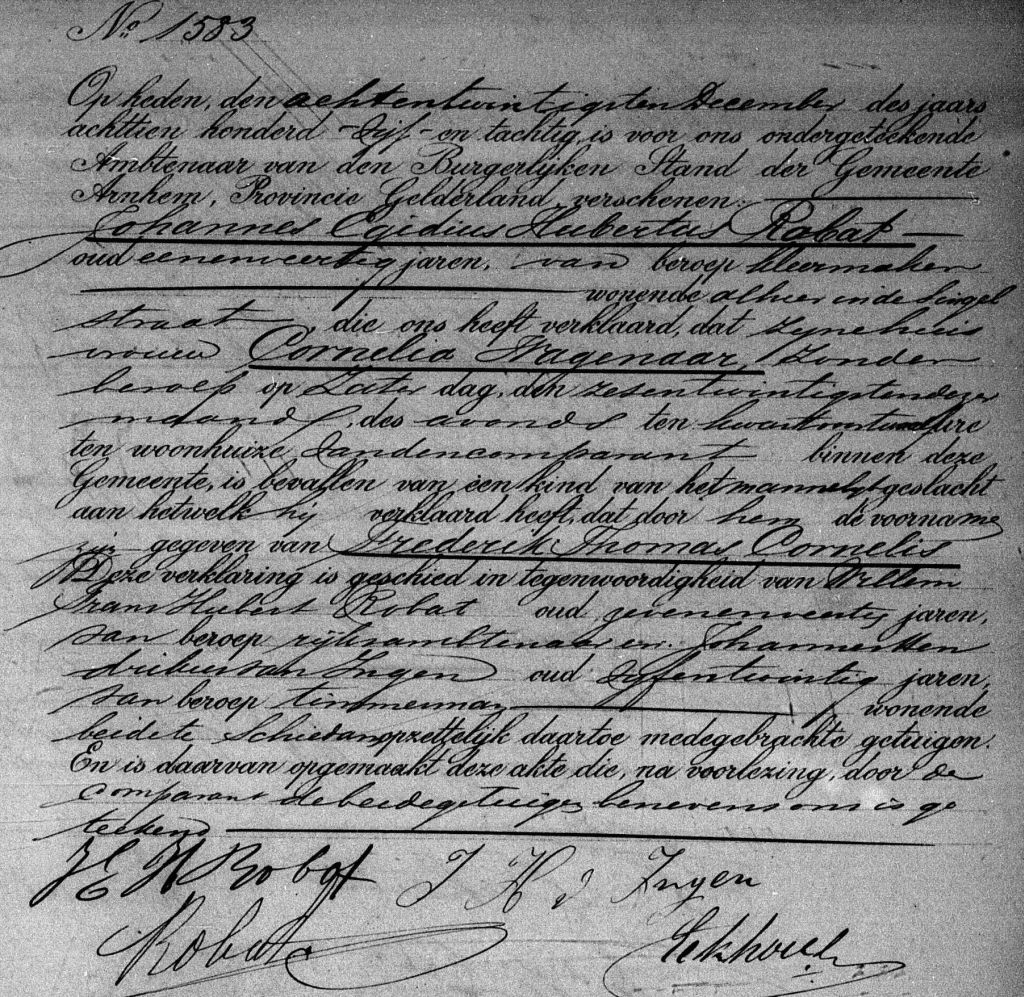 No 1583
Op heden, den achtentwintigsten December des jaars
achttien honderd - Vijf - en tachtig, is voor ons ondergeteekende
Ambtenaar van den Burgerlijken Stand der Gemeente
Arnhem, Provincie Gelderland, verschenen:
Johannes Egidius Hubertus Robat
oud eenenveertig jaren, van beroep kleermaker
wonende alhier in de Singel
straat, die ons heeft verklaard, dat zijne huis
vrouw Cornelia Wagenaar, zonder
beroep op Zaterdag, den zesentwintigsten dezer
maand, des avonds ten kwart voor twaalf ure
ten woonhuize van den comparant binnen deze
Gemeente, is bevallen van een kind van het mannelijk geslacht
aan hetwelk hij verklaard heeft, dat door hem de voorname
zijn gegeven van Frederik Thomas Cornelis
Deze verklaring is geschied in tegenwoordigheid van Willem
Frans Hubert Robat oud zevenenveertig jaren,
van beroep rijksambtenaar en Johannes Hen
drikus van Ingen oud vijfentwintig jaren,
van beroep timmerman wonende
beide te Schiedam opzettelijk daartoe medegebrachte getuigen.
En is daarvan opgemaakt deze akte die, na voorlezing, door de
comparant de beide getuigen benevens ons is ge
teekend
J E H Robat J H v Ingen
Robat